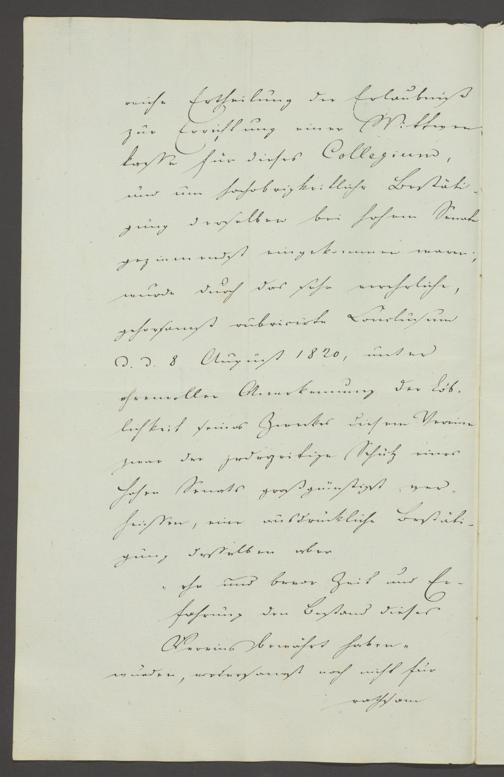 reiche Ertheilung der Erlaubniß
zur Errichtung einer Wittwen-
kasse für dieses Collegium,
und um hochobrigkeitliche Bestäti-
gung derselben bei hohem Senate
geziemendst eingekommen waren;
wurde durch das sehr verehrliche,
gehorsamst rubricirte Conclusum
d. d. 8 August 1820, unter
ehrenvoller Anerkennung der Löb-
lichkeit seines Zweckes diesem Vereine
zwar der jederzeitige Schutz eines
hohen Senats großgünstigst ver-
heissen, eine ausdrückliche Bestäti-
gung desselben aber
"ehe und bevor Zeit und Er-
fahrung den Bestand dieses
Vereins bewährt haben"
würden, noch nicht für
rathsam